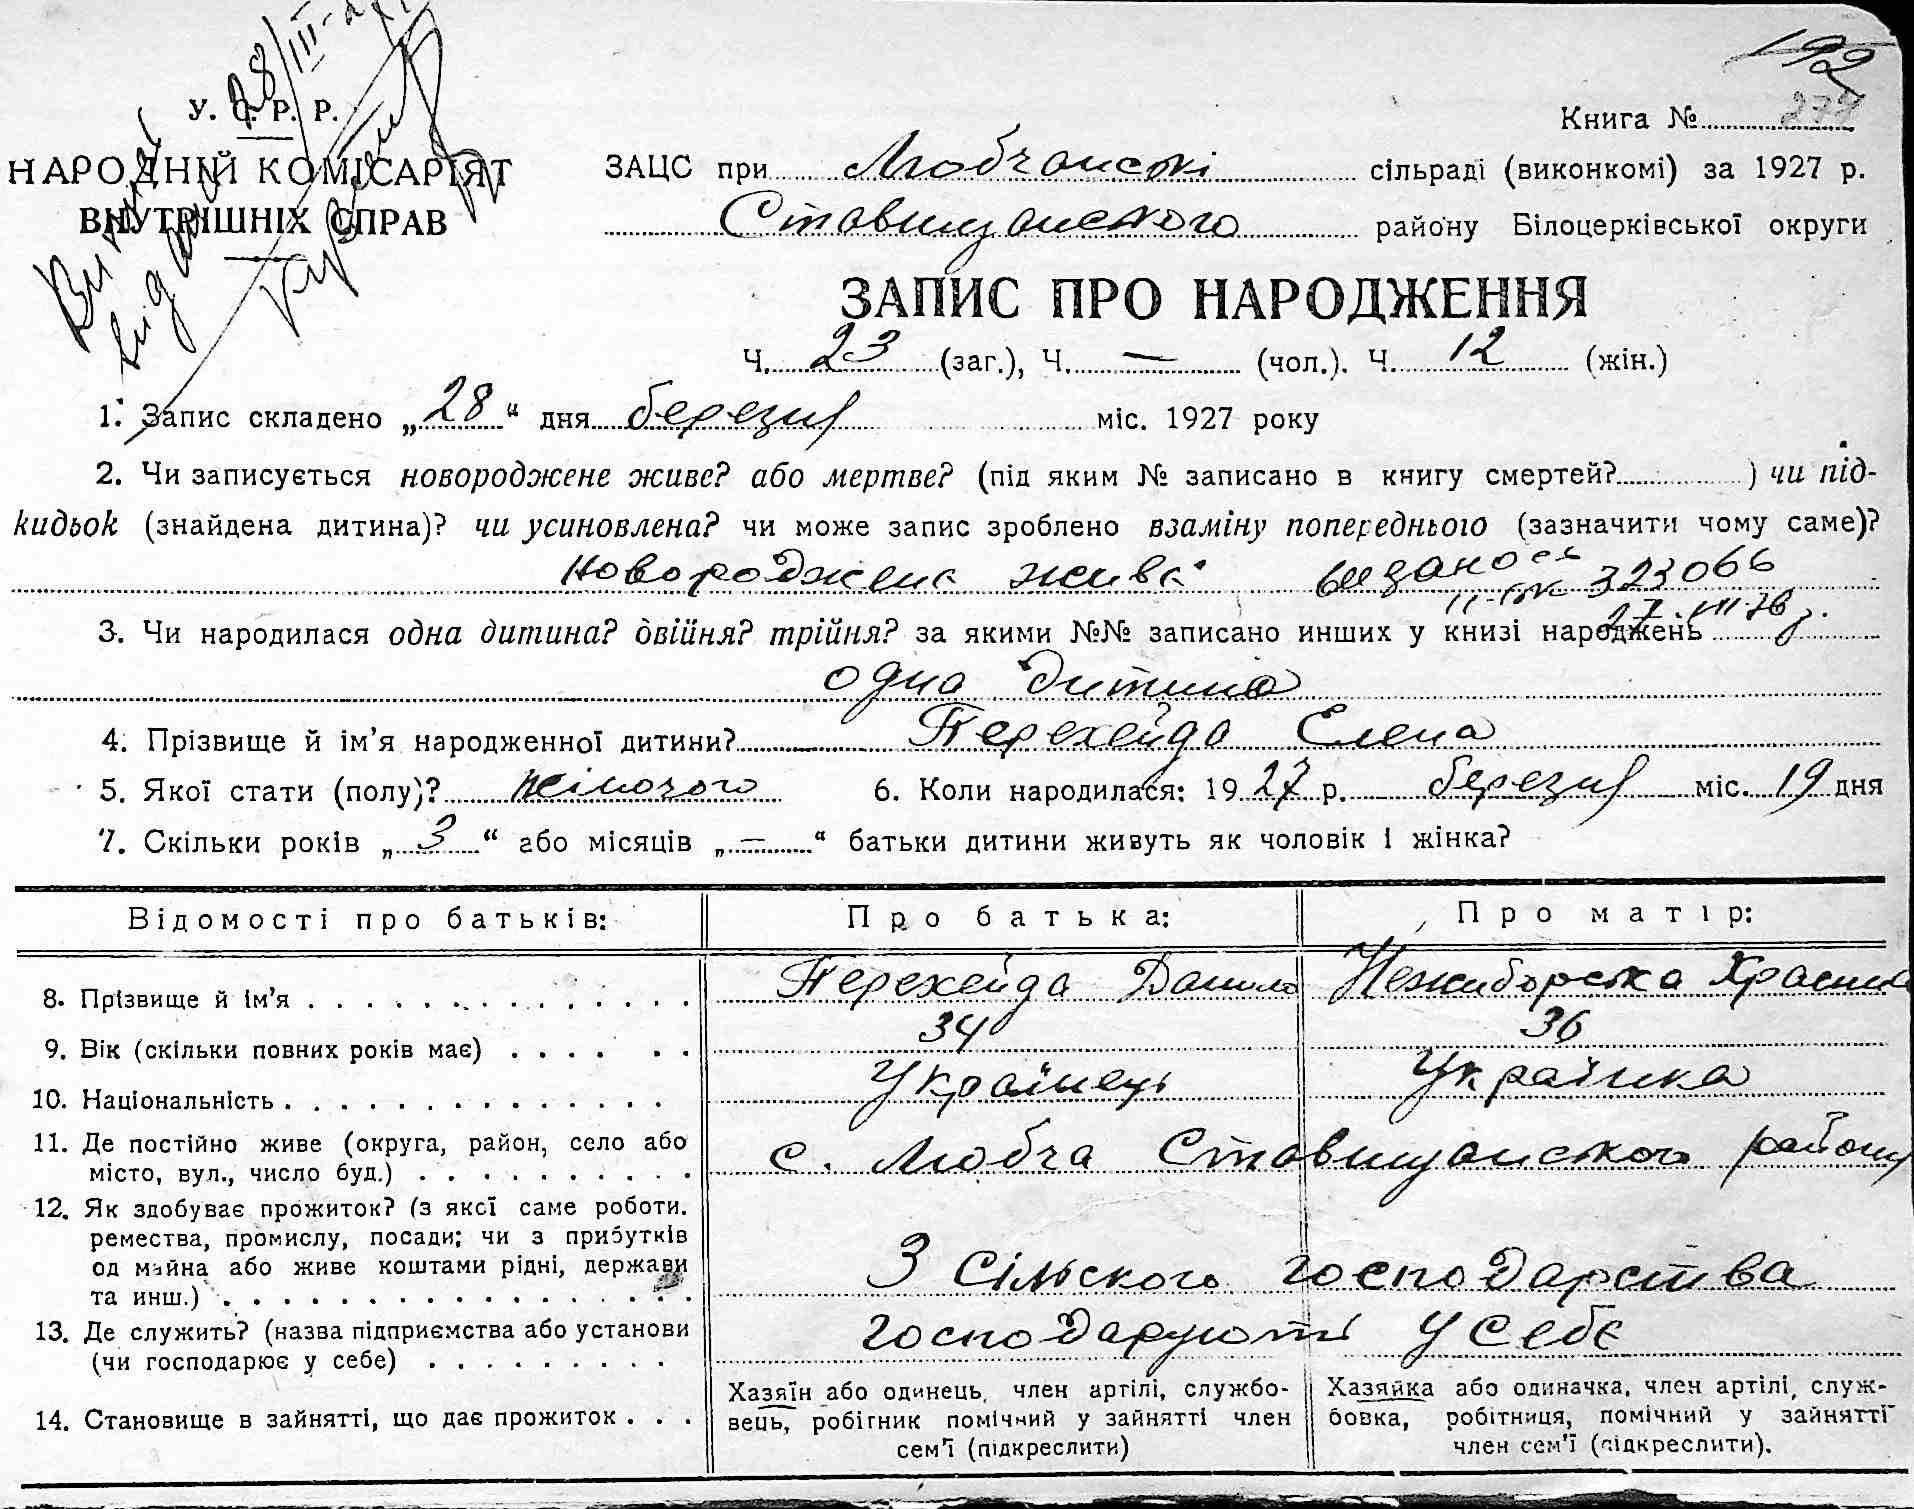 192
274
У. С. Р. Р.
28/III-27
НАРОДНІЙ КОМІСАРІЯТ
ВНУТРІШНІХ СПРАВ
Книга №
ЗАЦС при Любчанські сільраді (виконкомі) за 1927 р.
Ставищанського району Білоцерківської округи
ЗАПИС ПРО НАРОДЖЕННЯ
Ч. 23 (заг.), Ч. — (чол.). Ч. 12 (жін.)
1. Запис складено „28“ дня березня міс. 1927 року
2. Чи записується новороджене живе? або мертве? (під яким № записано в книгу смертей? ) чи під-
кидьок (знайдена дитина)? чи усиновлена? чи може запис зроблено взаміну попереднього (зазначити чому саме)?
Новороджена жива видано св
II-БК 323066
27.VII 76р.
3. Чи народилася одна дитина? двійня? трійня? за якими №№ записано инших у книзі народжень
одна дитина
4. Прізвище й ім’я народженної дитини? Перехейда Елена
5. Якої стати (полу)? жіночого 6. Коли народилася: 1927 р. березня міс. 19 дня
7. Скільки років „3“ або місяців „—“ батьки дитини живуть як чоловік і жінка?
Відомості про батьків: Про батька: Про матір:
8. Прізвище й ім’я Перехейда Данило Нежиборська Храсина
9. Вік (скільки повних років має) 34 36
10. Національність Українець Українка
11. Де постійно живе (округа, район, село або
місто, вул., число буд.) с. Любча Ставищанського району
12. Як здобуває прожиток? (з якої саме роботи.
ремества, промислу, посади; чи з прибутків
од майна або живе коштами рідні, держави
та инш.) З сільского господарства
13. Де служить? (назва підприємства або установи
(чи господарює у себе) господарують у себе
14. Становище в зайнятті, що дає прожиток
Хазяїн або одинець, член артілі, службо-
вець, робітник помічний у зайнятті член
сем’ї (підкреслити)
Хазяйка або одиначка, член артілі, служ-
бовка, робітниця, помічний у зайнятті
член сем’ї (підкреслити).